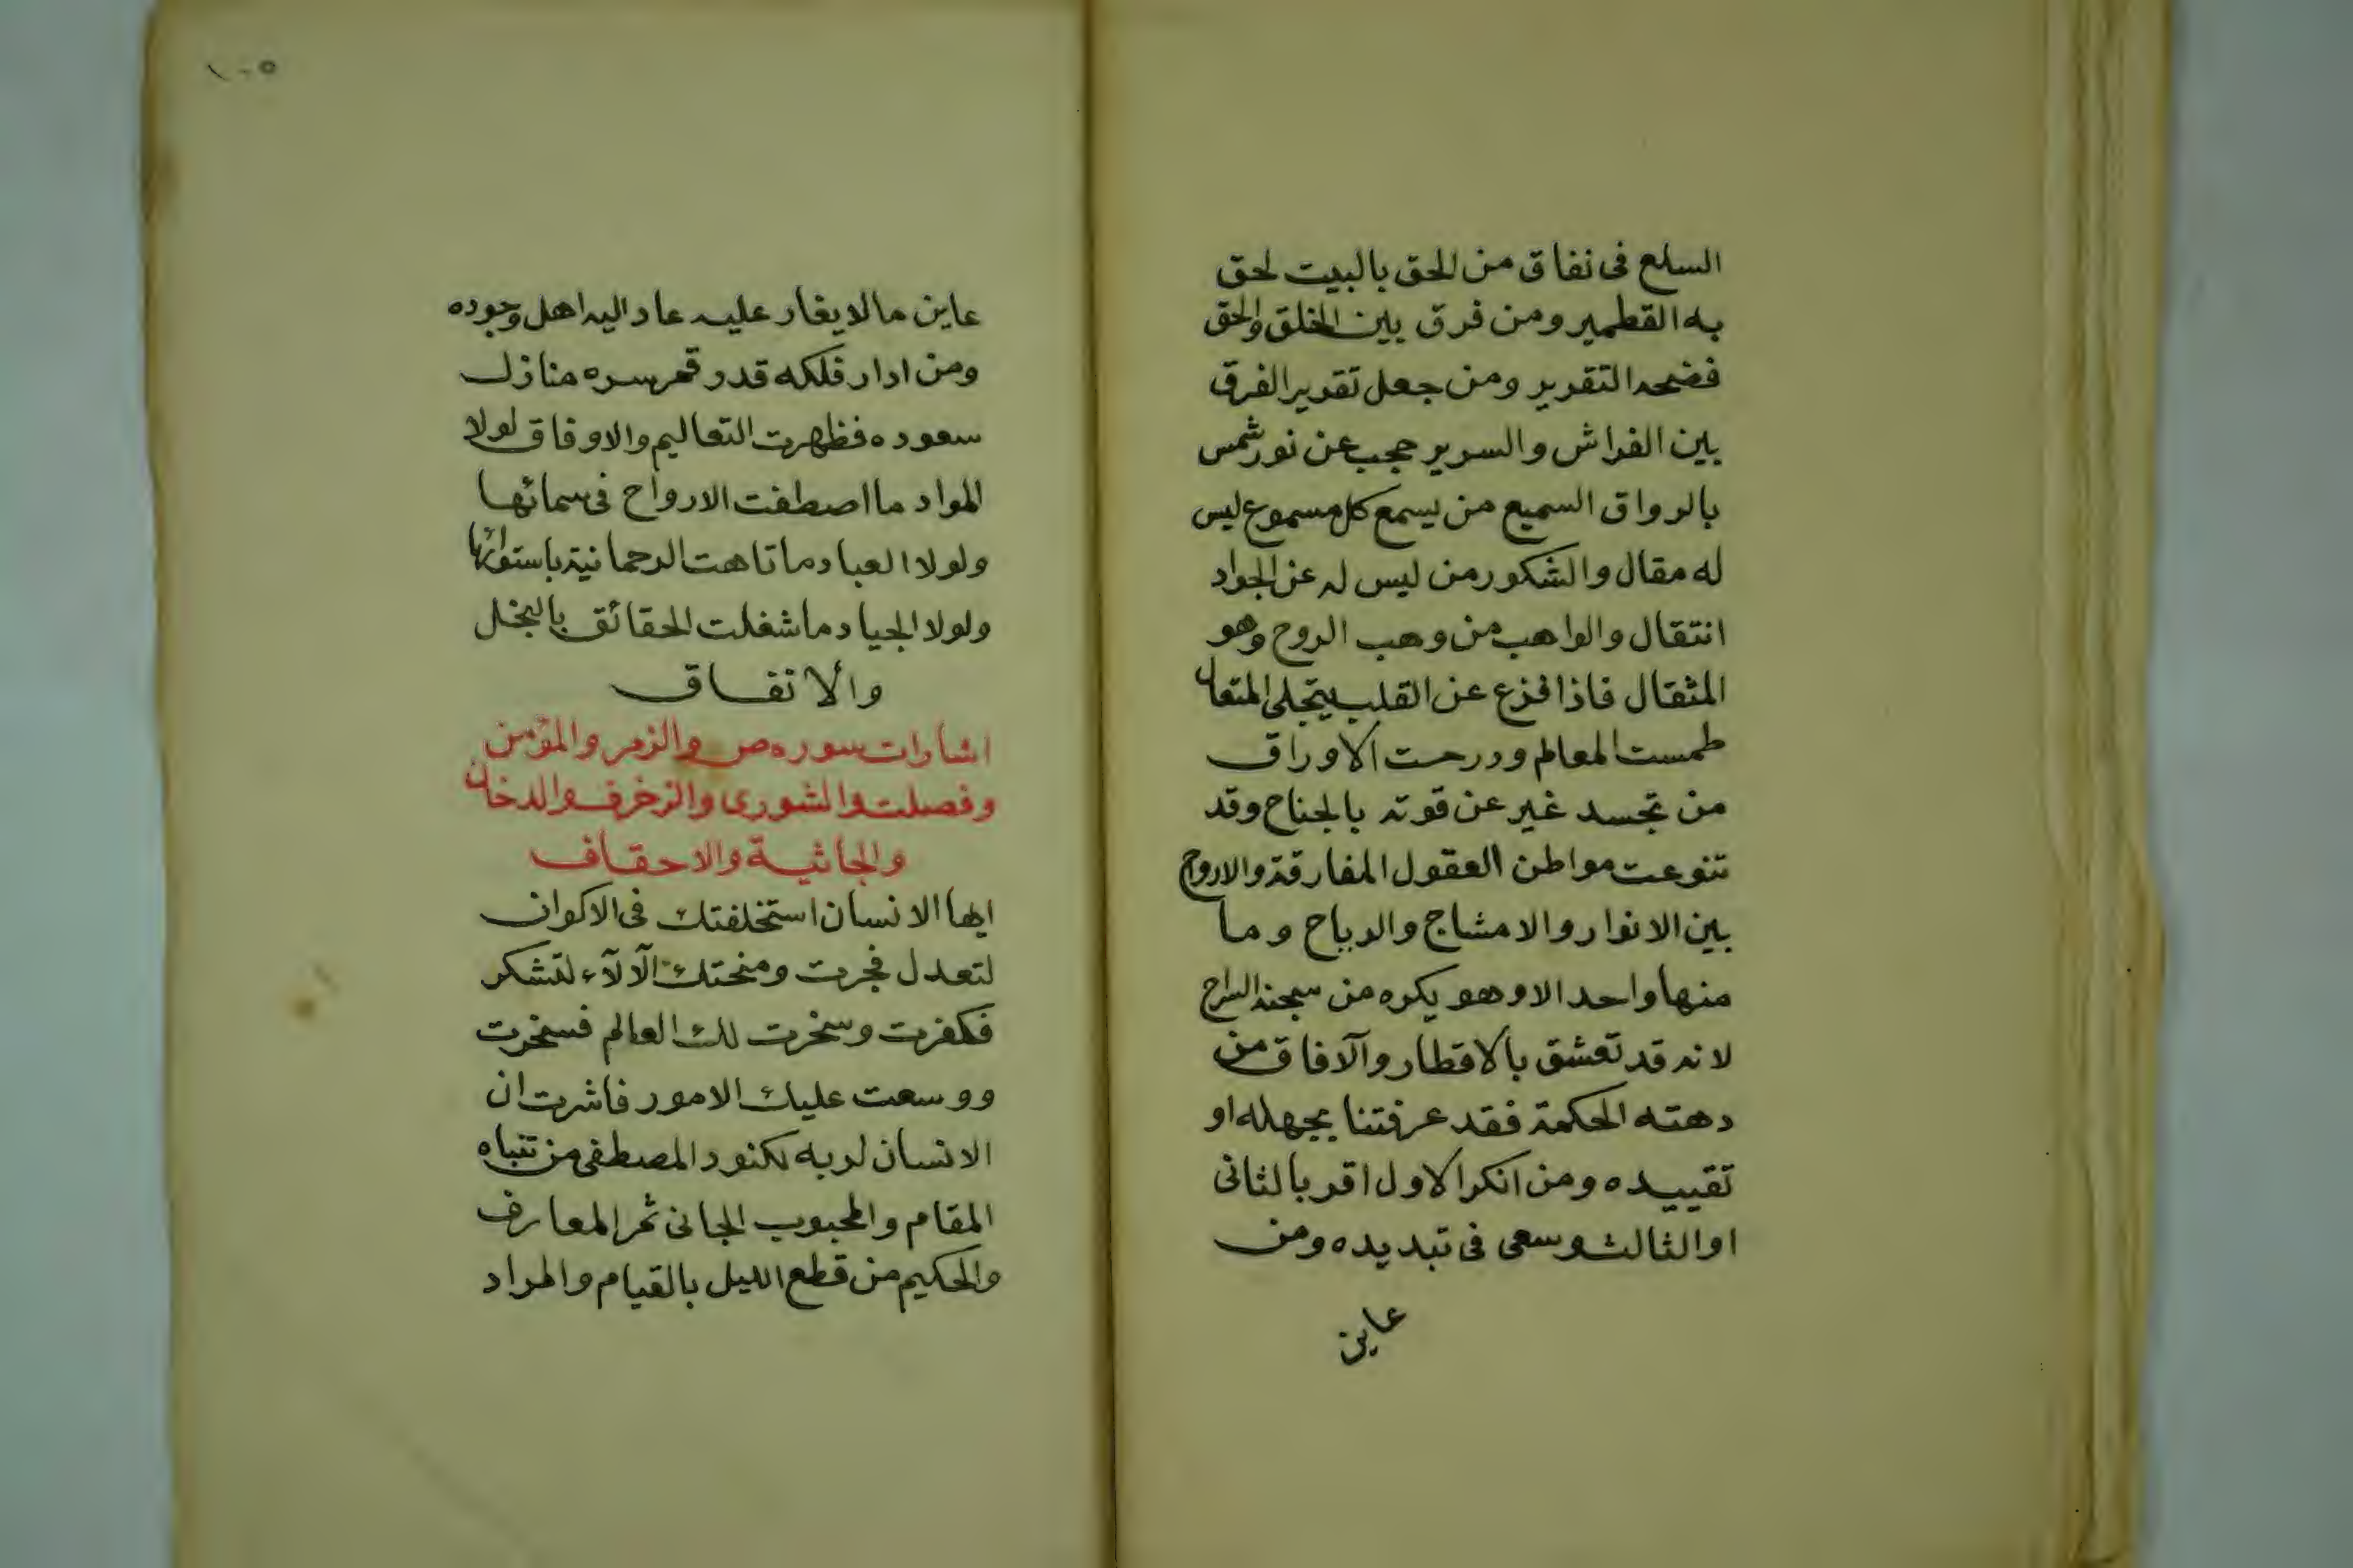 السلع فى نفاق من الحق بالبيت لحق
به القطمير ومن فرق بين الخلق والحق
فضحه التقرير ومن جعل تقرير الفرق
بين الفراش والسرير حجب عن نور شمس
بالرواق السميع من يسمع كل مسموع ليس
له مقال والشكور من ليس له عن الجواد
انتقال والواهب من وهب الروح وهو
المثقال فاذا فزع عن القلب يتجلى المتعال
طمست المعالم ودرحت الاوراق
من تجسد غير عن قوته بالجناح وقد
تنوعت مواطن العقول المفارقة والارواح
بين الانوار والامشاج والرياح وما
منها واحد الا وهو يكره من سجنه السراح
لانه قد تعشق بالاقطار والآفاق من
دهته الحكمة فقد عرفتنا بجهله او
تقييده ومن انكر الاول اقر بالثانى
او الثالث وسعى فى تبديده ومن
عاين
١٠٥
عاين ما لا يغار عليه عاد اليه اهل وجوده
ومن ادار فلكه قدر قمر سره منازل
سعوده فظهرت التعاليم والاوفاق لولا
المواد ما اصطفت الارواح فى سمائها
ولولا العباد ما تاهت الرحمانية باستوائها
ولولا الجياد ما شغلت الحقائق بالبخل
والانفاق
اشارات سوره ص والزمر والمؤمن
وفصلت والشورى والزخرف والدخان
والجاثية والاحقاف
ايها الانسان استخلفتك فى الاكوان
لتعدل فجرت ومنحتك الآلآء لتشكر
فكفرت وسخرت لك العالم فسخرت
ووسعت عليك الامور فاشرت ان
الانسان لربه لكنود المصطفى من تنباه
المقام والمحبوب الجانى ثمر المعارف
والحكيم من قطع الليل بالقيام والمراد